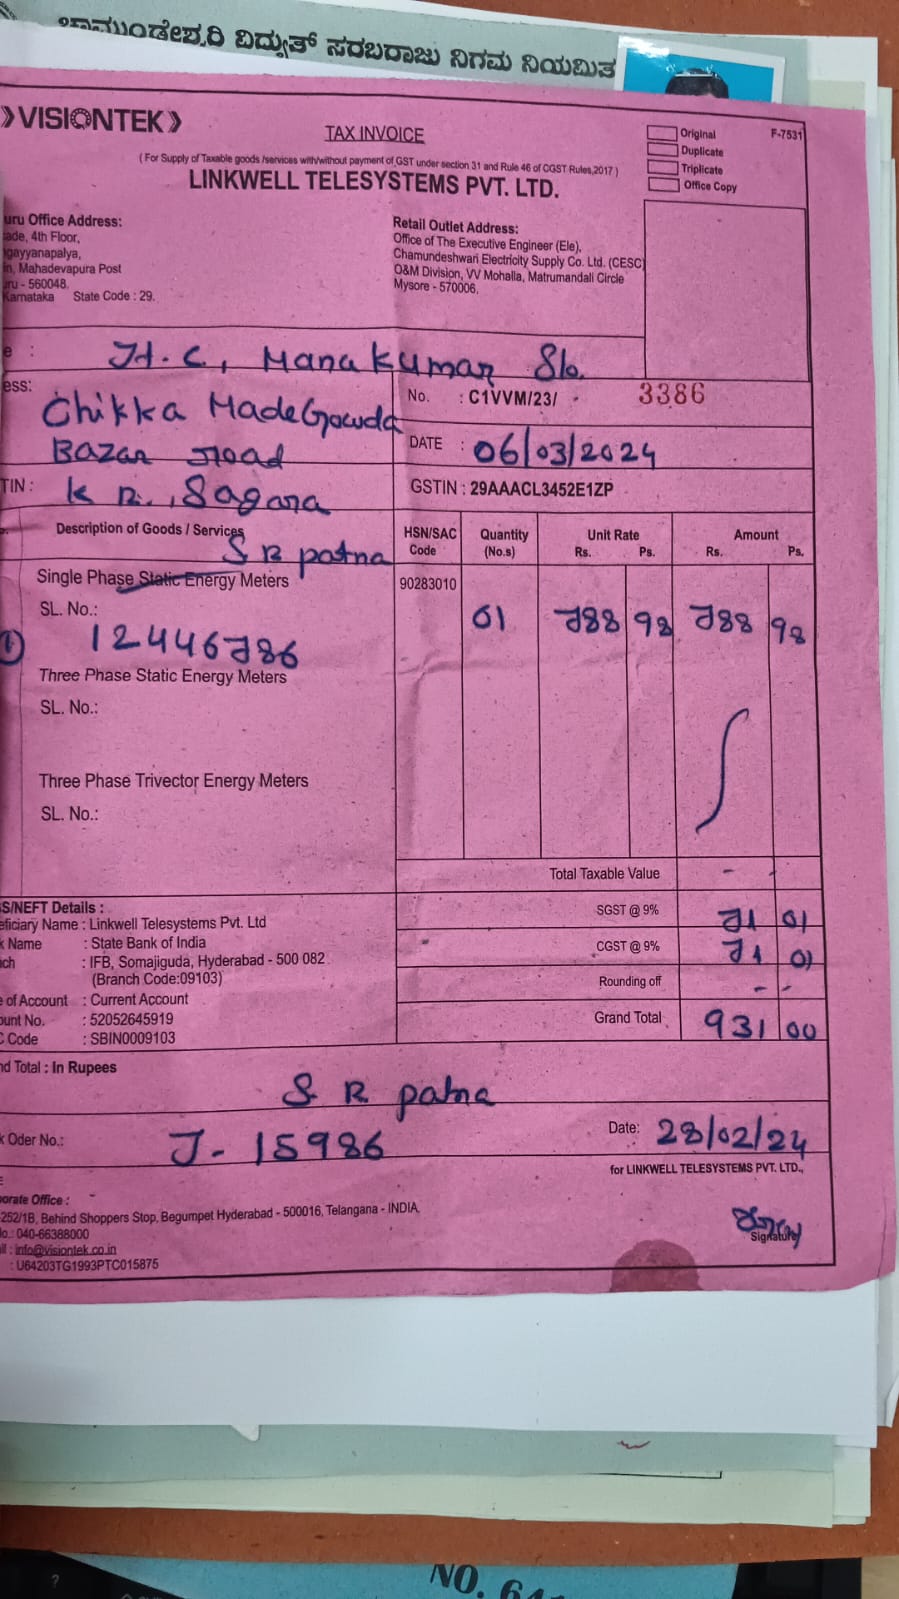 ಚಾಮುಂಡೇಶ್ವರಿ ವಿದ್ಯುತ್ ಸರಬರಾಜು ನಿಗಮ ನಿಯಮಿತ
VISIONTEK
TAX INVOICE
Original
F-7531
Duplicate
Triplicate
Office Copy
( For Supply of Taxable goods /services with/without payment of GST under section 31 and Rule 46 of CGST Rules,2017 )
LINKWELL TELESYSTEMS PVT. LTD.
uru Office Address:
ade, 4th Floor,
gayyanapalya,
in, Mahadevapura Post
uru - 560048.
Karnataka State Code : 29.
Retail Outlet Address:
Office of The Executive Engineer (Ele),
Chamundeshwari Electricity Supply Co. Ltd. (CESC)
O&M Division, VV Mohalla, Matrumandali Circle
Mysore - 570006.
e : H.C, Manakumar S/o.
ess: Chikka MadeGowda
No. : C1VVM/23/ 3386
Bazar Road
DATE : 06/03/2024
TIN : K R., Sagara
GSTIN : 29AAACL3452E1ZP
Description of Goods / Services HSN/SAC Code Quantity (No.s) Unit Rate Rs. Ps. Amount Rs. Ps.
S R patna
Single Phase Static Energy Meters 90283010
SL. No.: 01 788 98 788 98
1 12446786
Three Phase Static Energy Meters
SL. No.:
Three Phase Trivector Energy Meters
SL. No.:
Total Taxable Value - -
SGST @ 9% 71 01
CGST @ 9% 71 01
Rounding off - -
Grand Total 931 00
S/NEFT Details :
eficiary Name : Linkwell Telesystems Pvt. Ltd
k Name : State Bank of India
nch : IFB, Somajiguda, Hyderabad - 500 082.
(Branch Code:09103)
e of Account : Current Account
ount No. : 52052645919
C Code : SBIN0009103
nd Total : In Rupees
S R patna
k Oder No.: J- 15986
Date: 28/02/24
for LINKWELL TELESYSTEMS PVT. LTD.,
porate Office :
-252/1B, Behind Shoppers Stop, Begumpet Hyderabad - 500016, Telangana - INDIA.
No.: 040-66388000
il : info@visiontek.co.in
: U64203TG1993PTC015875
Signature
NO.